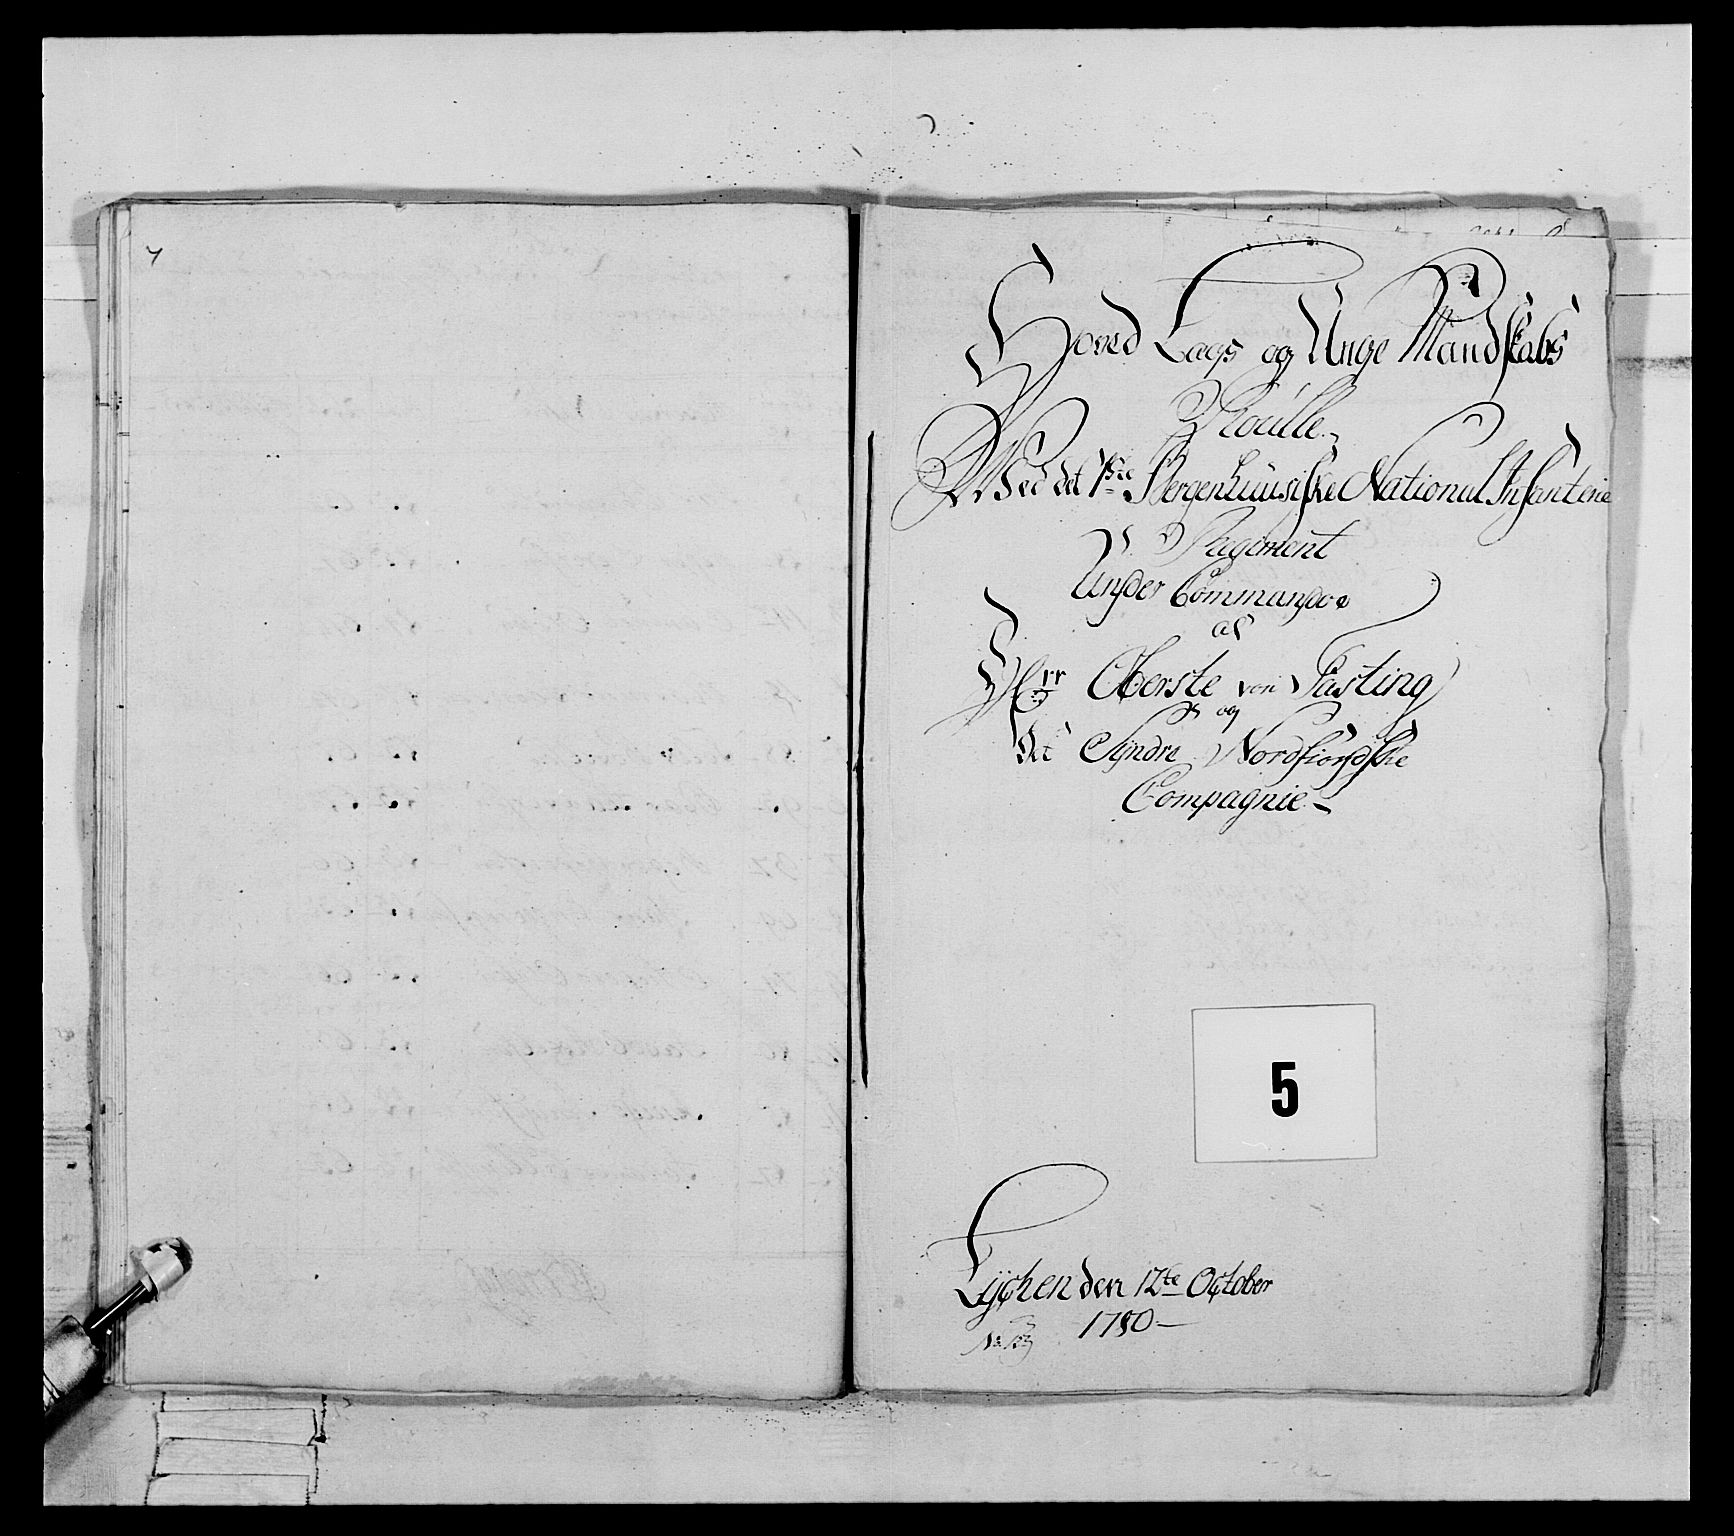 Hoved Lags og Unge Mandskabs
Roulle
Ved det 1ste Bergenhuusiske National Infanterie
Regiment
Under Commando
af
Hrr Oberste von Fasting
og
Det Syndre Nordfiordske
Compagnie
5
den 12te October
1780